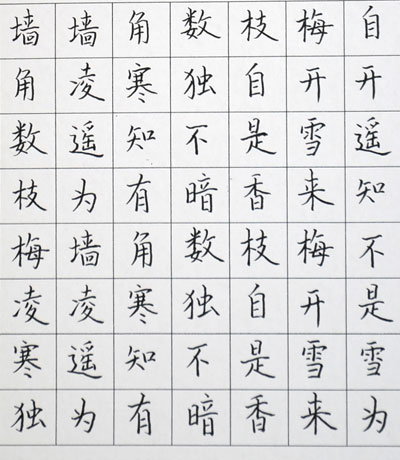 墙墙角数枝梅自
角凌寒独自开开
数遥知不是雪遥
枝为有暗香来知
梅墙角数枝梅不
凌凌寒独自开是
寒遥知不是雪雪
独为有暗香来为